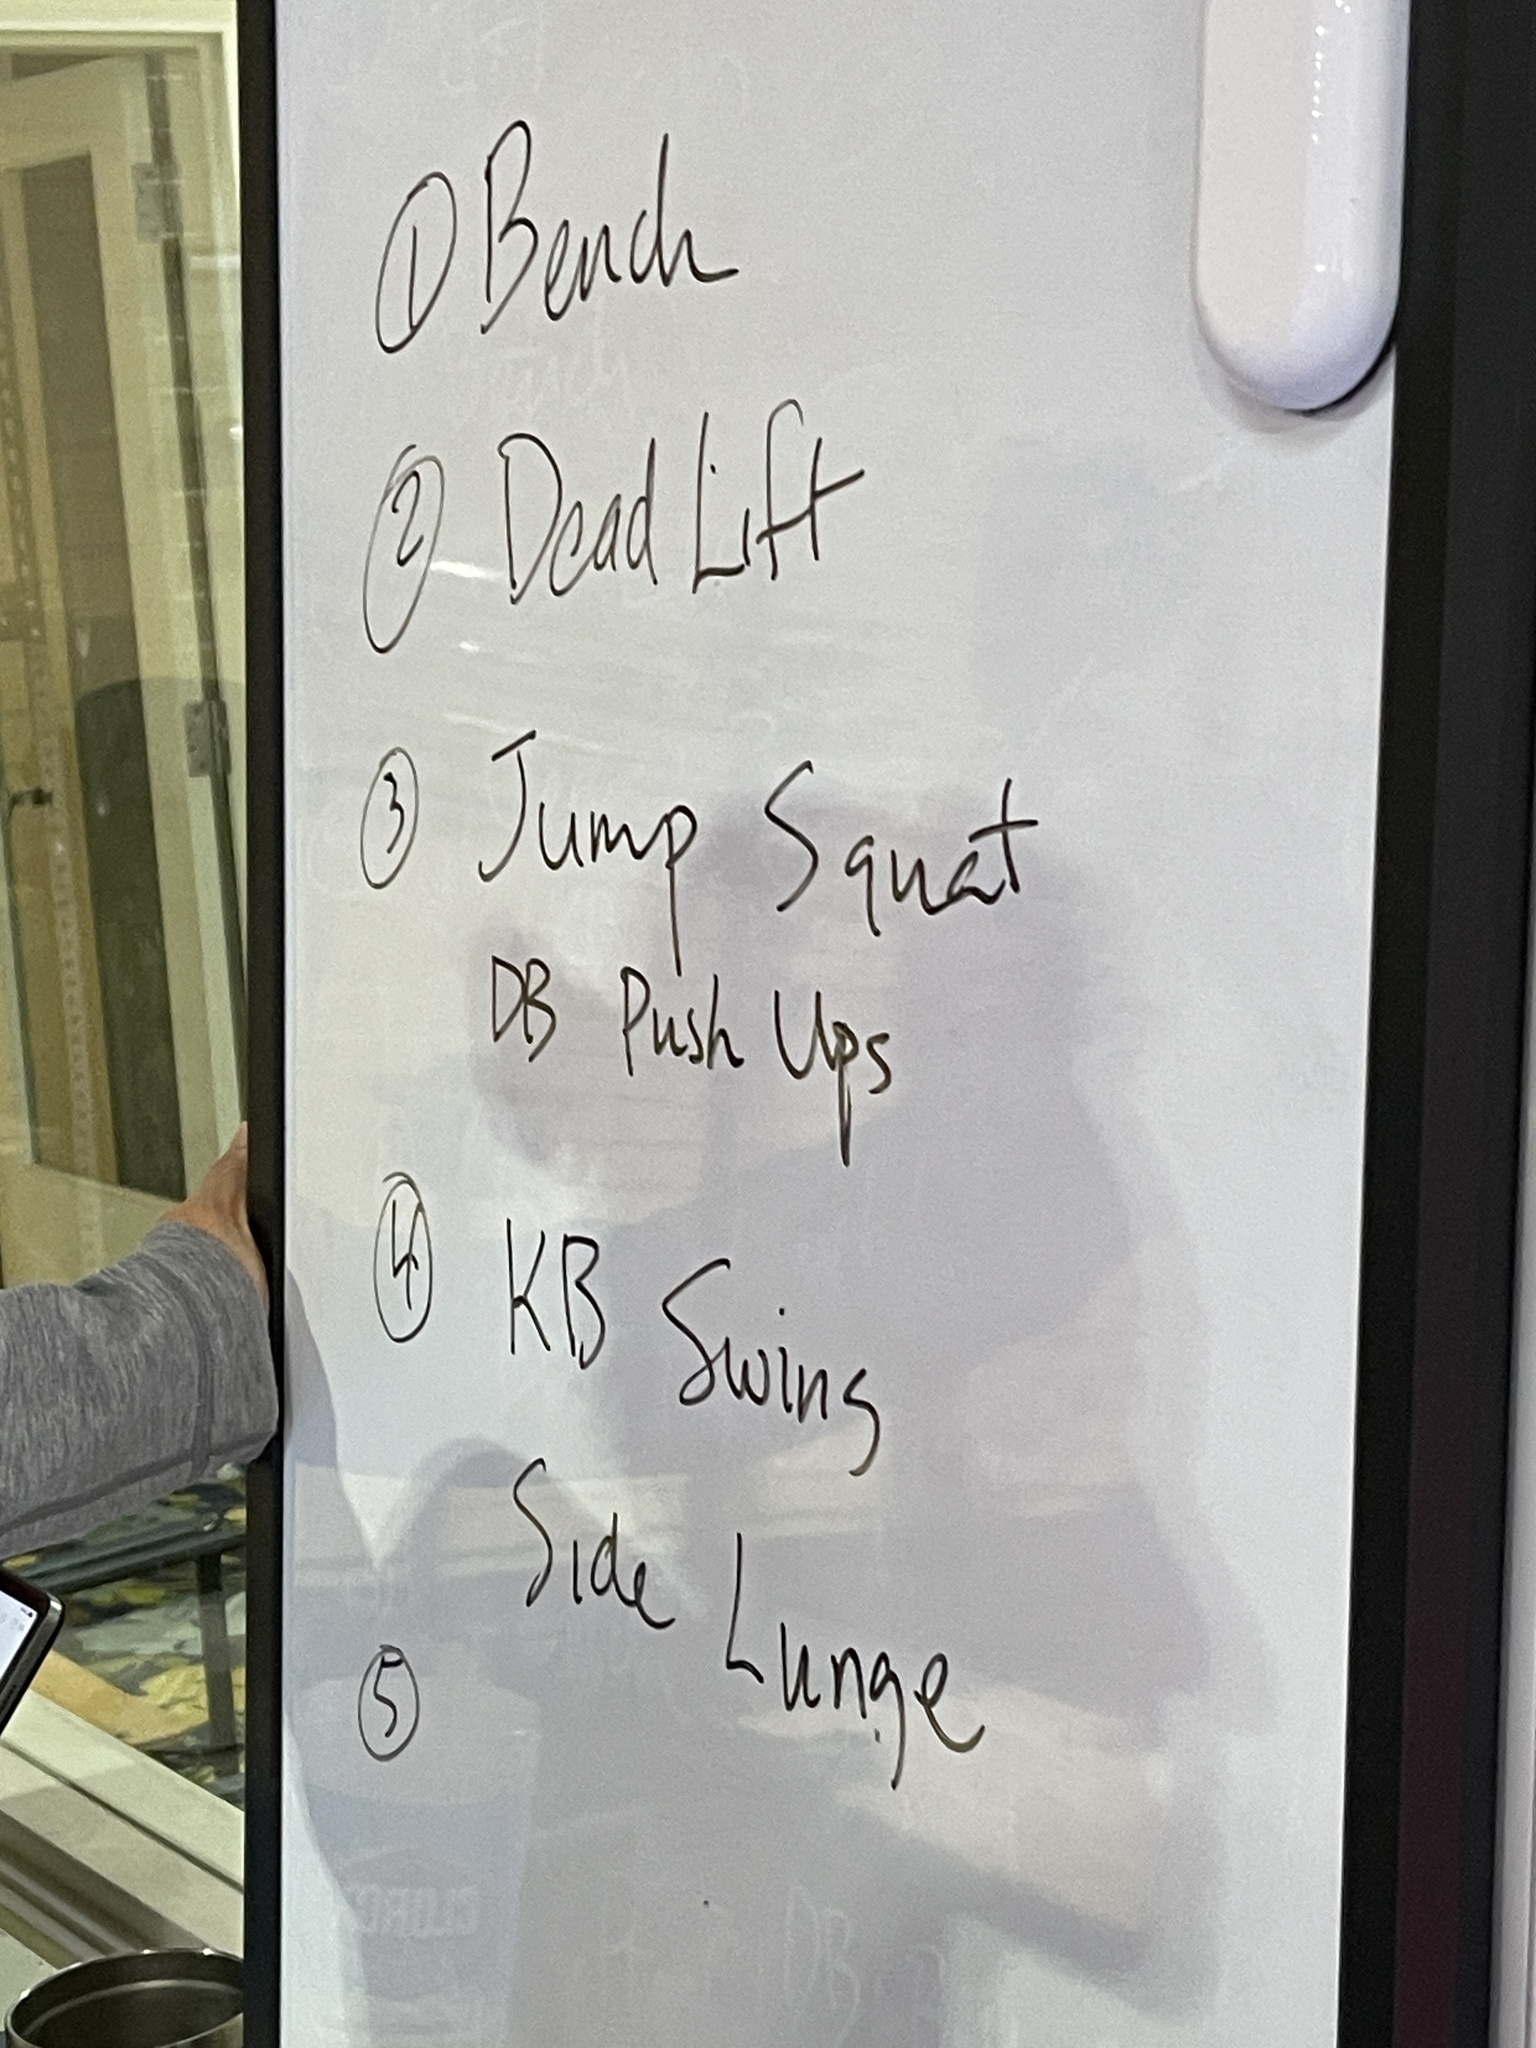 ① Bench
② Dead Lift
③ Jump Squat
DB Push Ups
④ KB Swing
Side Lunge
⑤